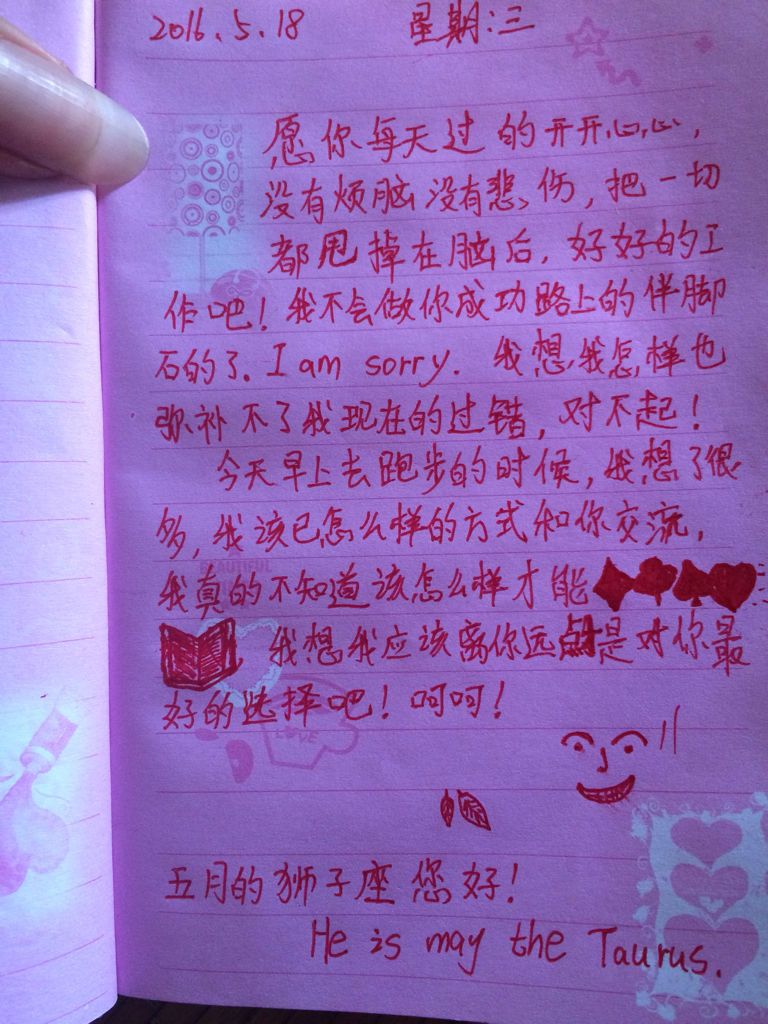 2016.5.18 星期:三
愿你每天过的开开心心,
没有烦脑没有悲伤,把一切
都甩掉在脑后,好好的工
作吧!我不会做你成功路上的伴脚
石的了.I am sorry. 我想我怎样也
弥补不了我现在的过错,对不起!
今天早上去跑步的时候,我想了很
多,我该已怎么样的方式和你交流,
我真的不知道该怎么样才能
我想我应该离你远点是对你最
好的选择吧!呵呵!
LOVE
五月的狮子座您好!
He is may the Taurus.